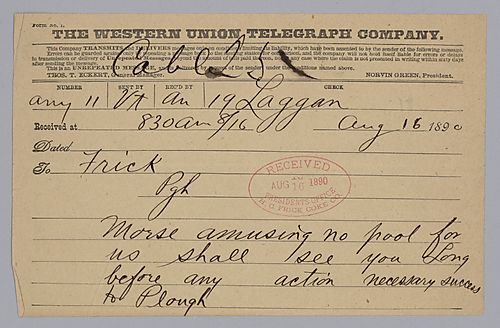 Form No. 1.
THE WESTERN UNION TELEGRAPH COMPANY.
This Company TRANSMITS and DELIVERS messages only on conditions limiting its liability, which have been assented to by the sender of the following message.
Errors can be guarded against only by repeating a message back to the sending station for comparison, and the company will not hold itself liable for errors or delays
in transmission or delivery of Unrepeated Messages, beyond the amount of tolls paid thereon, nor in any case where the claim is not presented in writing within sixty days
after sending the message.
This is an UNREPEATED MESSAGE, and is delivered by request of the sender under the conditions named above.
THOS. T. ECKERT, General Manager. NORVIN GREEN, President.
NUMBER SENT BY REC'D BY CHECK
19 Laggan
Received at 830am 8/16 Aug 16 1890
Dated
To Frick
Pgh
RECEIVED
AUG 16 1890
PRESIDENTS OFFICE
H. C. FRICK COKE CO.
Morse amusing no pool for
us shall see you Long
before any action necessary success
to Plough